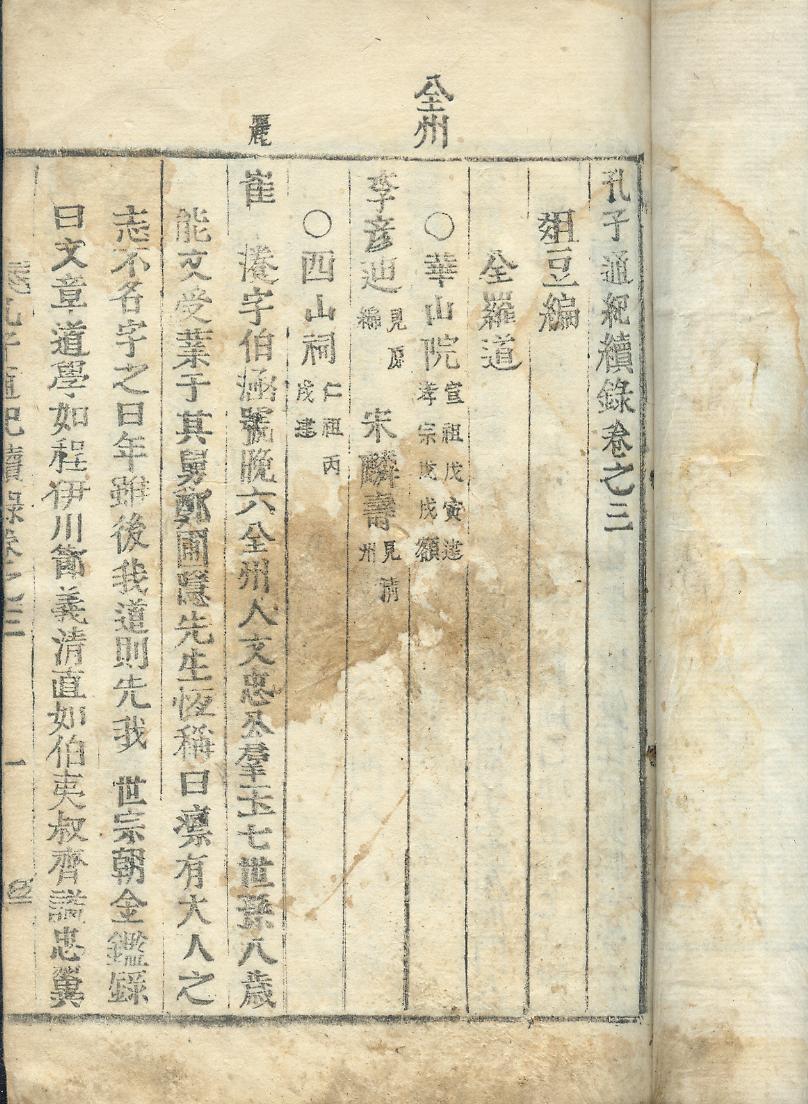 孔子通紀續錄卷之三
俎豆編
全羅道
全州
○華山院 宣祖戊寅建
孝宗戊戌額
李彦迪 見原
編 宋麟壽 見淸
州
○西山祠 仁祖丙
戌建
麗
崔 瀁字伯涵號晩六全州人文忠公羣玉七世孫八歲
能文受業于其舅鄭圃隱先生恆稱曰凛有大人之
志不名字之曰年雖後我道則先我 世宗朝金鑑錄
曰文章道學如程伊川節義清直如伯夷叔齊諡忠翼
孔子通紀續錄卷之三 一